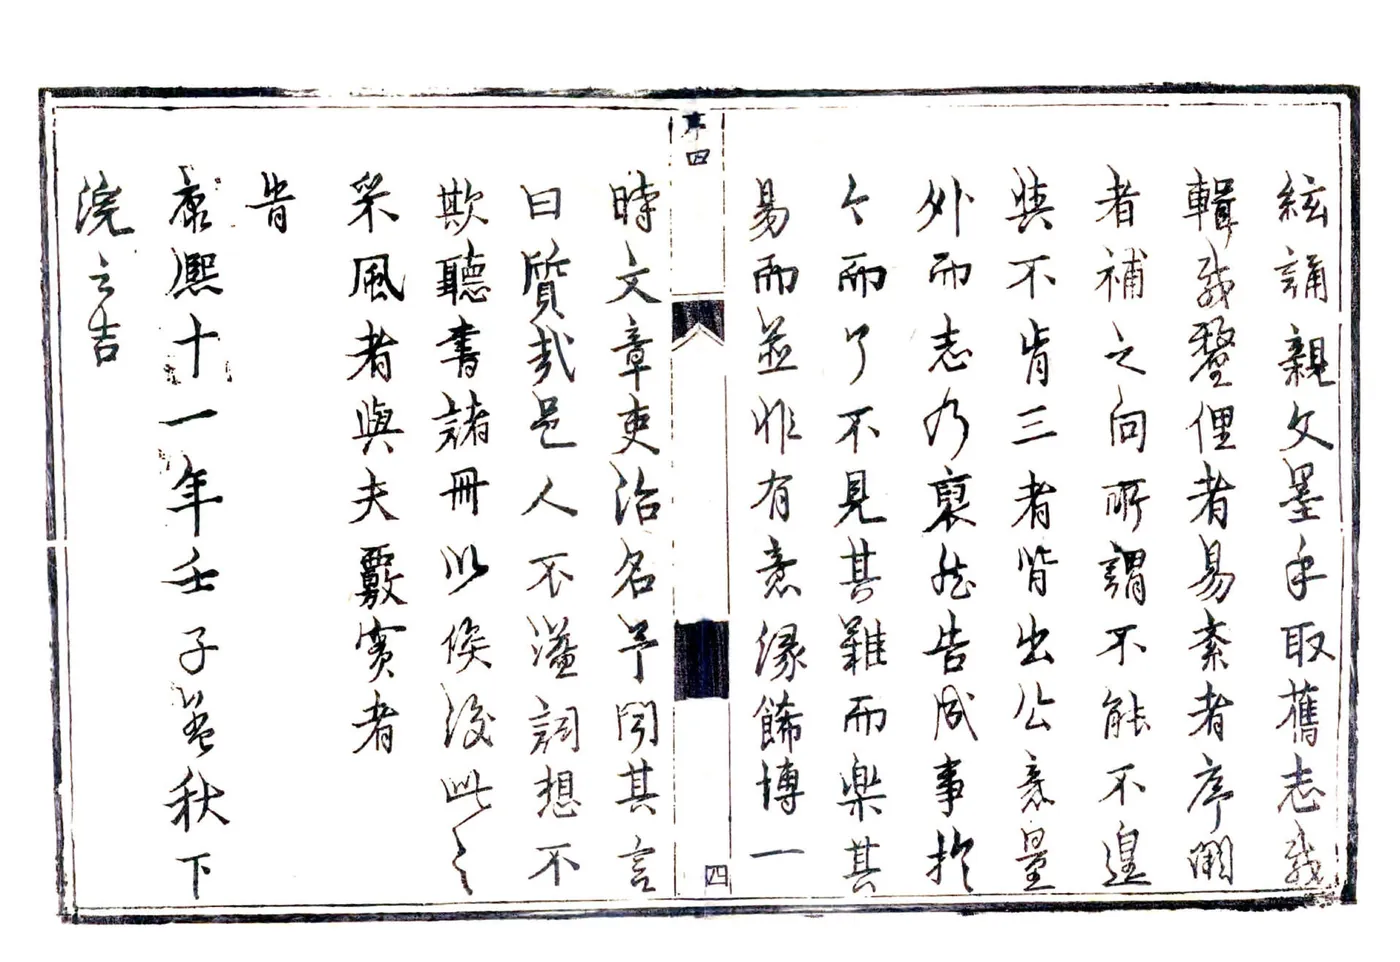 絃誦親文墨手取舊志哉
輯哉鏧俚者易紊者序闕
者補之向所謂不能不遑
與不肯三者皆出公意量
外而志乃裒然告成事於
今而了不見其難而樂其
易而並非有意緣餙博一
序四
四
時文章吏治名予聞其言
曰質哉邑人不溢詞想不
欺聽書諸冊以俟後此之
采風者與夫覈實者
旹
康熙十一年壬子菊秋下
浣之吉